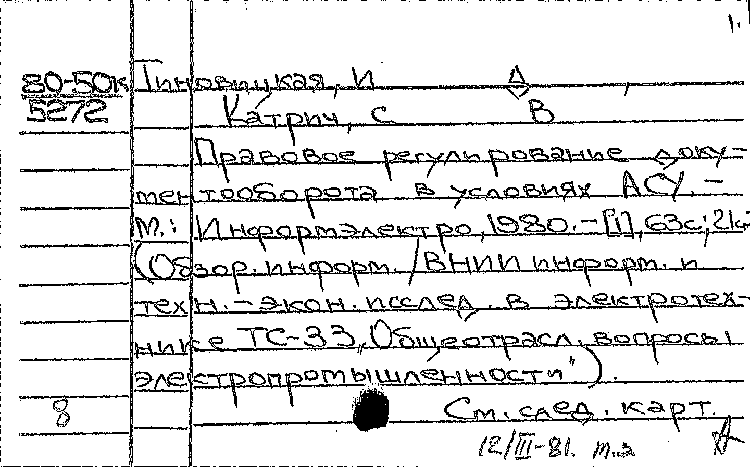 1.
80-50к Тиновицкая, И Д
5272 Катрич, С В
Правовое регулирование доку-
ментооборота в условиях АСУ. –
М.: Информэлектро, 1980. – [1], 63с; 21с
(Обзор. информ. / ВНИИ информ. и
техн. – экон. исслед. в электротех-
нике ТС-33 „Общеотрасл. вопросы
электропромышленности").
8 См. след. карт.
12/III-81. т.з